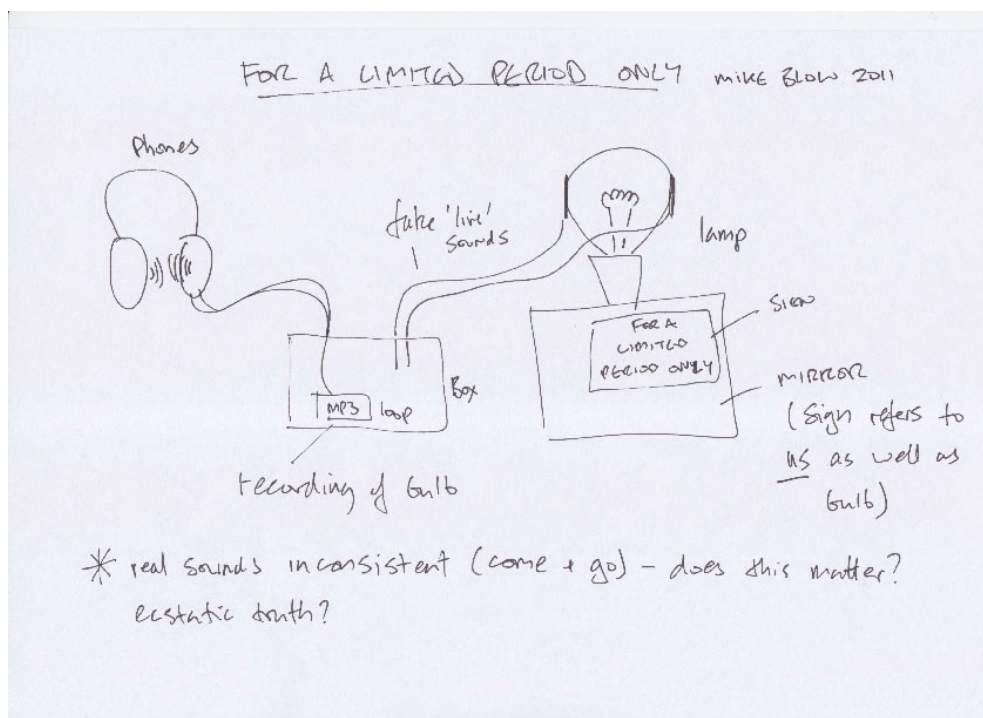 FOR A LIMITED PERIOD ONLY MIKE BLOW 2011
Phones
fake 'live'
sounds
lamp
SIGN
FOR A
LIMITED
PERIOD ONLY
MIRROR
(Sign refers to
us as well as
bulb)
Box
MP3 loop
recording of bulb
* real sounds inconsistent (come + go) - does this matter?
ecstatic truth?